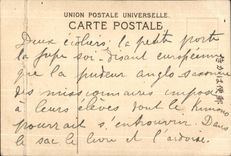 UNION POSTALE UNIVERSELLE
CARTE POSTALE
Deux écoliers, la petite porte
la jupe soi-disant européenne
que la pudeur anglo-saxonne
des missionnaires impose
à leurs élèves dont le kimono
pourrait s'entrouvrir. Dans
le sac le livre et l'ardoise.